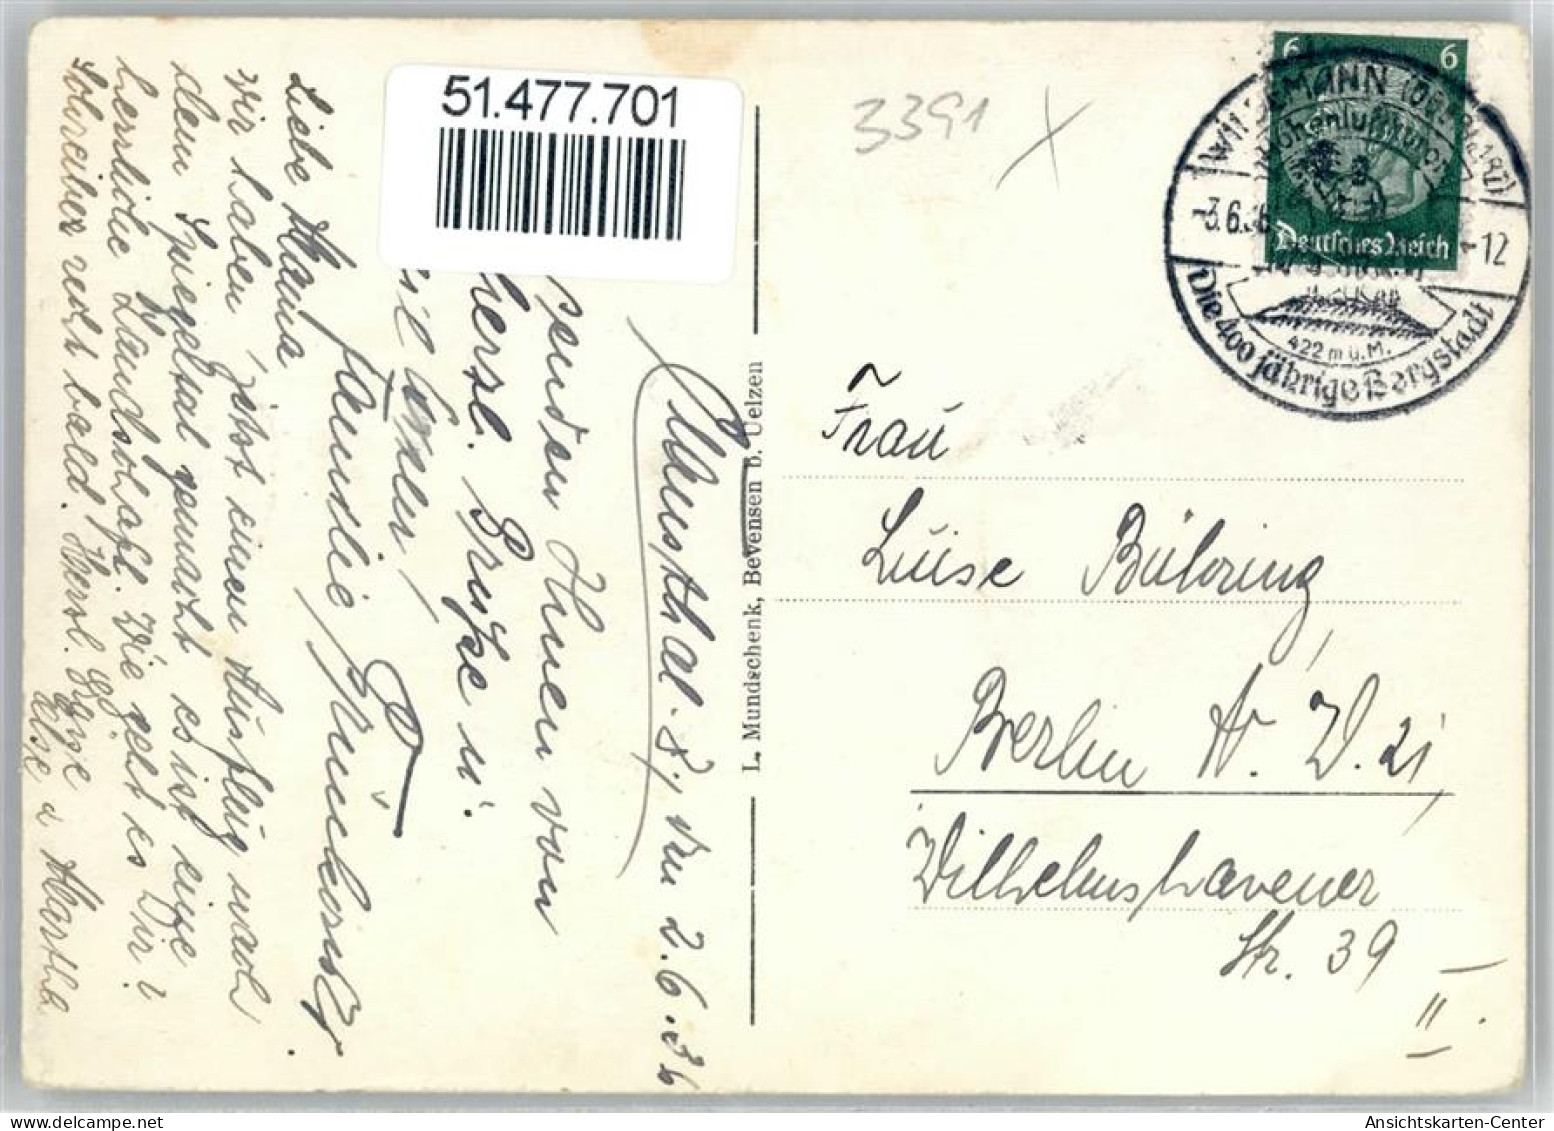 51.477.701
3391
6 6
Deutsches Reich
WILDEMANN (OBERHARZ)
Höhenluftkurort
-3.6.36 -12
422 m ü. M.
Die 400 jährige Bergstadt
Frau
Luise Bühring,
Berlin N.W. 21,
Wilhelmshavener
Str. 39
II.
L. Mundschenk, Bevensen b. Uelzen
Clausthal-Z, den 2.6.36
senden Ihnen von
herzl. Grüße u.
Familie
Liebe Mama
Wir haben jetzt einen Ausflug nach
dem Spiegelsal gemacht es ist eine
herrliche Landschaft. Wie geht es Dir?
Schreiber recht bald. Herzl. Grüße
Else u Martha
Ansichtskarten-Center